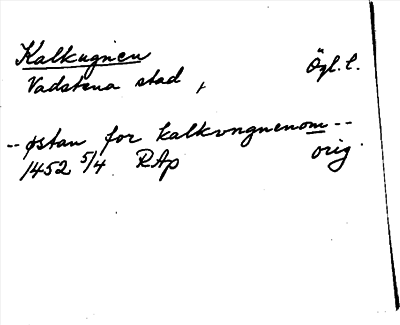 Kalkugnen Ögl. l.
Vadstena stad,
-- østan for kalkvngnenom --
1452 5/4 RAp orig.